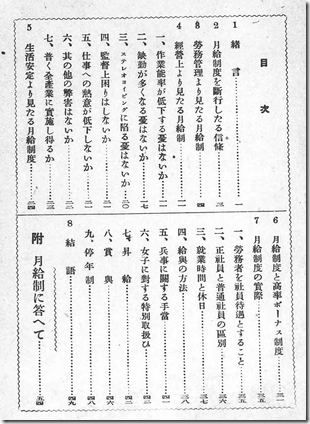 目次
1 緒言……一
2 月給制度を斷行したる信條
3 勞務管理より見たる月給制
4 經營上より見たる月給制
一、作業能率が低下する憂はないか
二、缺勤が多くなる憂はないか……一七
三、ステレオタイピングに陷る憂はないか……二〇
四、監督上困りはしないか……二一
五、仕事への熱意が低下しないか……二一
六、其の他の弊害はないか
七、普く全產業に實施し得るか
5 生活安定より見たる月給制度……二四
6 月給制度と高率ボーナス制度……三一
7 月給制度の實際……三五
一、勞務者を社員待遇とすること……三五
二、正社員と普通社員の區別……三六
三、就業時間と休日……三七
四、給與の方法……三八
五、兵事に關する手當……四一
六、女子に對する特別取扱ひ……四二
七、昇給
八、賞與
九、停年制……四八
8 結語……四九
附 月給制に答へて……五四